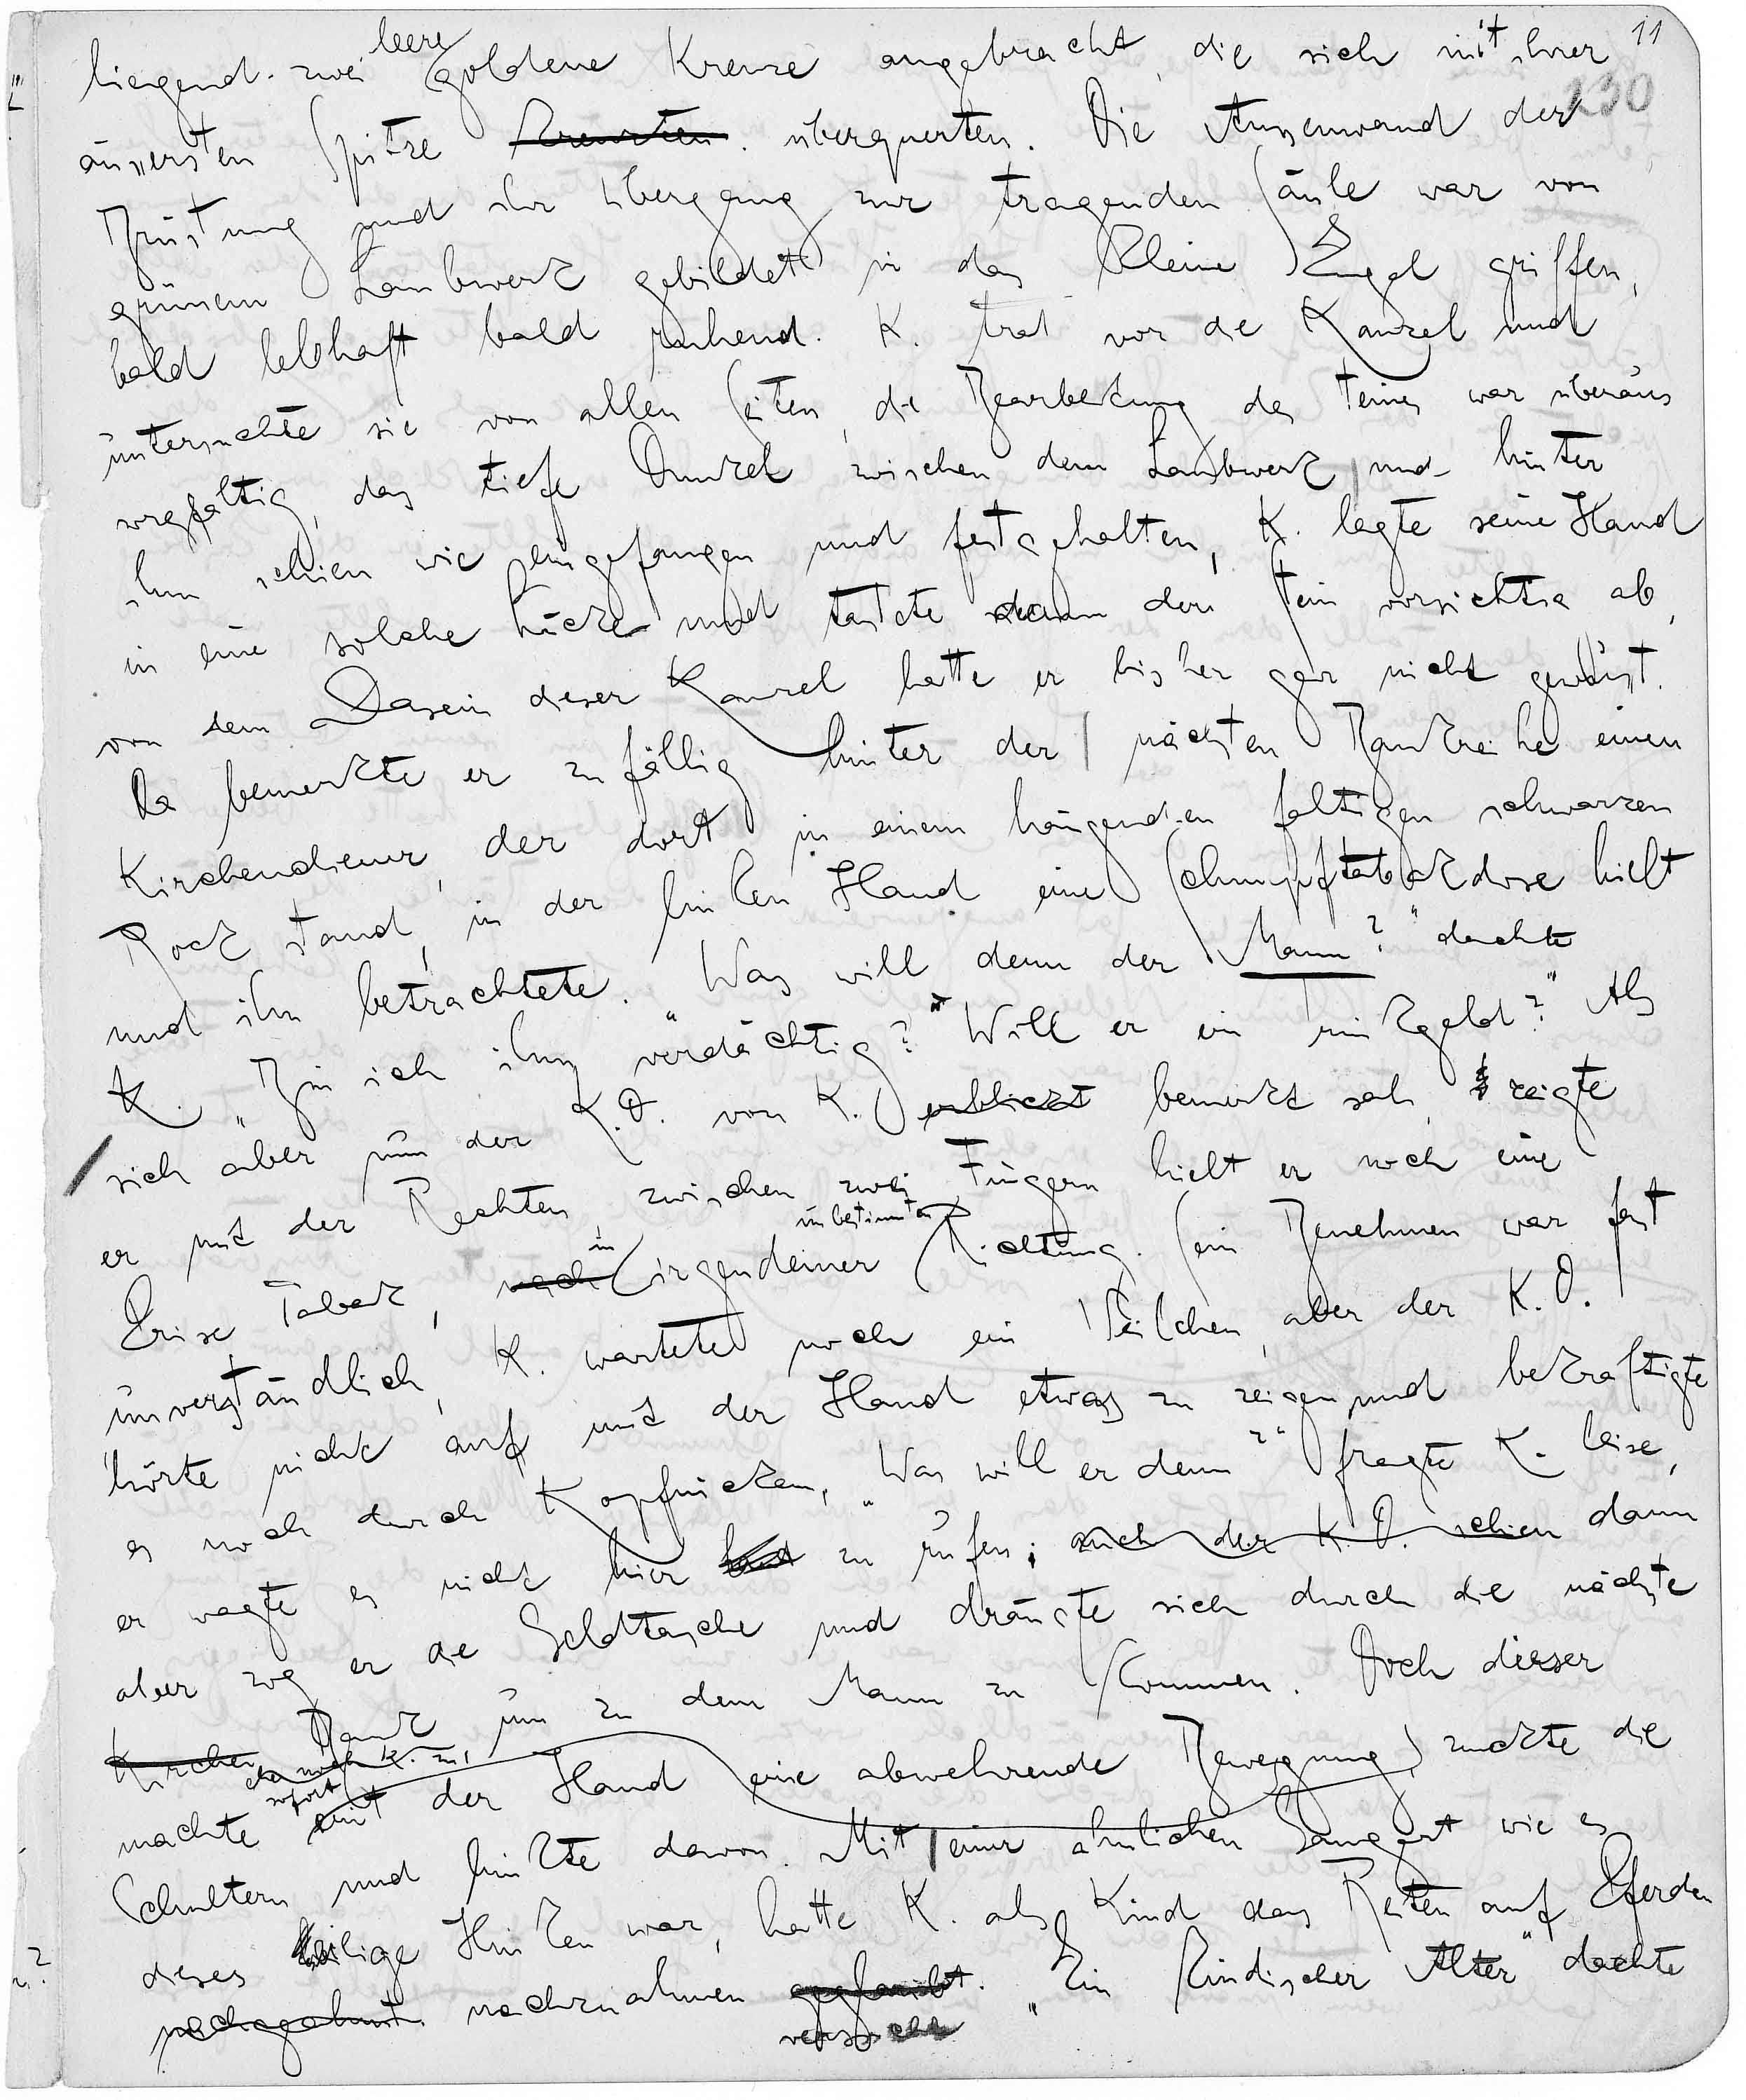 11
230
liegend. zwei leere goldene Kreuze angebracht, die sich mit ihrer
äussersten Spitze kreuzten. überquerten. Die Aussenwand der
Brüstung und ihr Übergang zur tragenden Säule war von
grünem Laubwerk gebildet in das kleine Engel griffen,
bald lebhaft bald ruhend. K. trat vor die Kanzel und
untersuchte sie von allen Seiten, die Bearbeitung des Steines war überaus
sorgfältig, das tiefe Dunkel zwischen dem Laubwerk und hinter
ihm schien wie eingefangen und festgehalten, K. legte seine Hand
in eine solche Lücke und tastete dann den Stein vorsichtig ab,
von dem Dasein dieser Kanzel hatte er bisher gar nicht gewusst.
Da bemerkte er zufällig hinter der nächsten Bankreihe einen
Kirchendiener, der dort in einem hängenden faltigen schwarzen
Rock stand, in der linken Hand eine Schnupftabakdose hielt
und ihn betrachtete. „Was will denn der Mann?" dachte
K. „Bin ich ihm verdächtig? Will er ein Trinkgeld?" Als
sich aber nun der K.D. von K. erblickt bemerkt sah, zeigte
er mit der Rechten, zwischen zwei Fingern hielt er noch eine
Prise Tabak, nach in irgendeiner unbestimmten Richtung. Sein Benehmen war fast
unverständlich, K. wartete noch ein Weilchen, aber der K.D.
hörte nicht auf mit der Hand etwas zu zeigen und bekräftigte
es noch durch Kopfnicken. „Was will er denn?" fragte K. leise,
er wagte es nicht hier laut zu rufen; auch der K.D. schien dann
aber zog er die Geldtasche und drängte sich durch die nächste
Kirchen Bank um zu dem Mann zu kommen. Doch dieser
machte sofort mit der Hand eine abwehrende Bewegung, zuckte die
Schultern und hinkte davon. Mit einer ähnlichen Gangart wie es
dieses eilige Hinken war, hatte K. als Kind das Reiten auf Pferden
nachgeahmt nachzuahmen geglaubt. versucht „Ein kindischer Alter" dachte